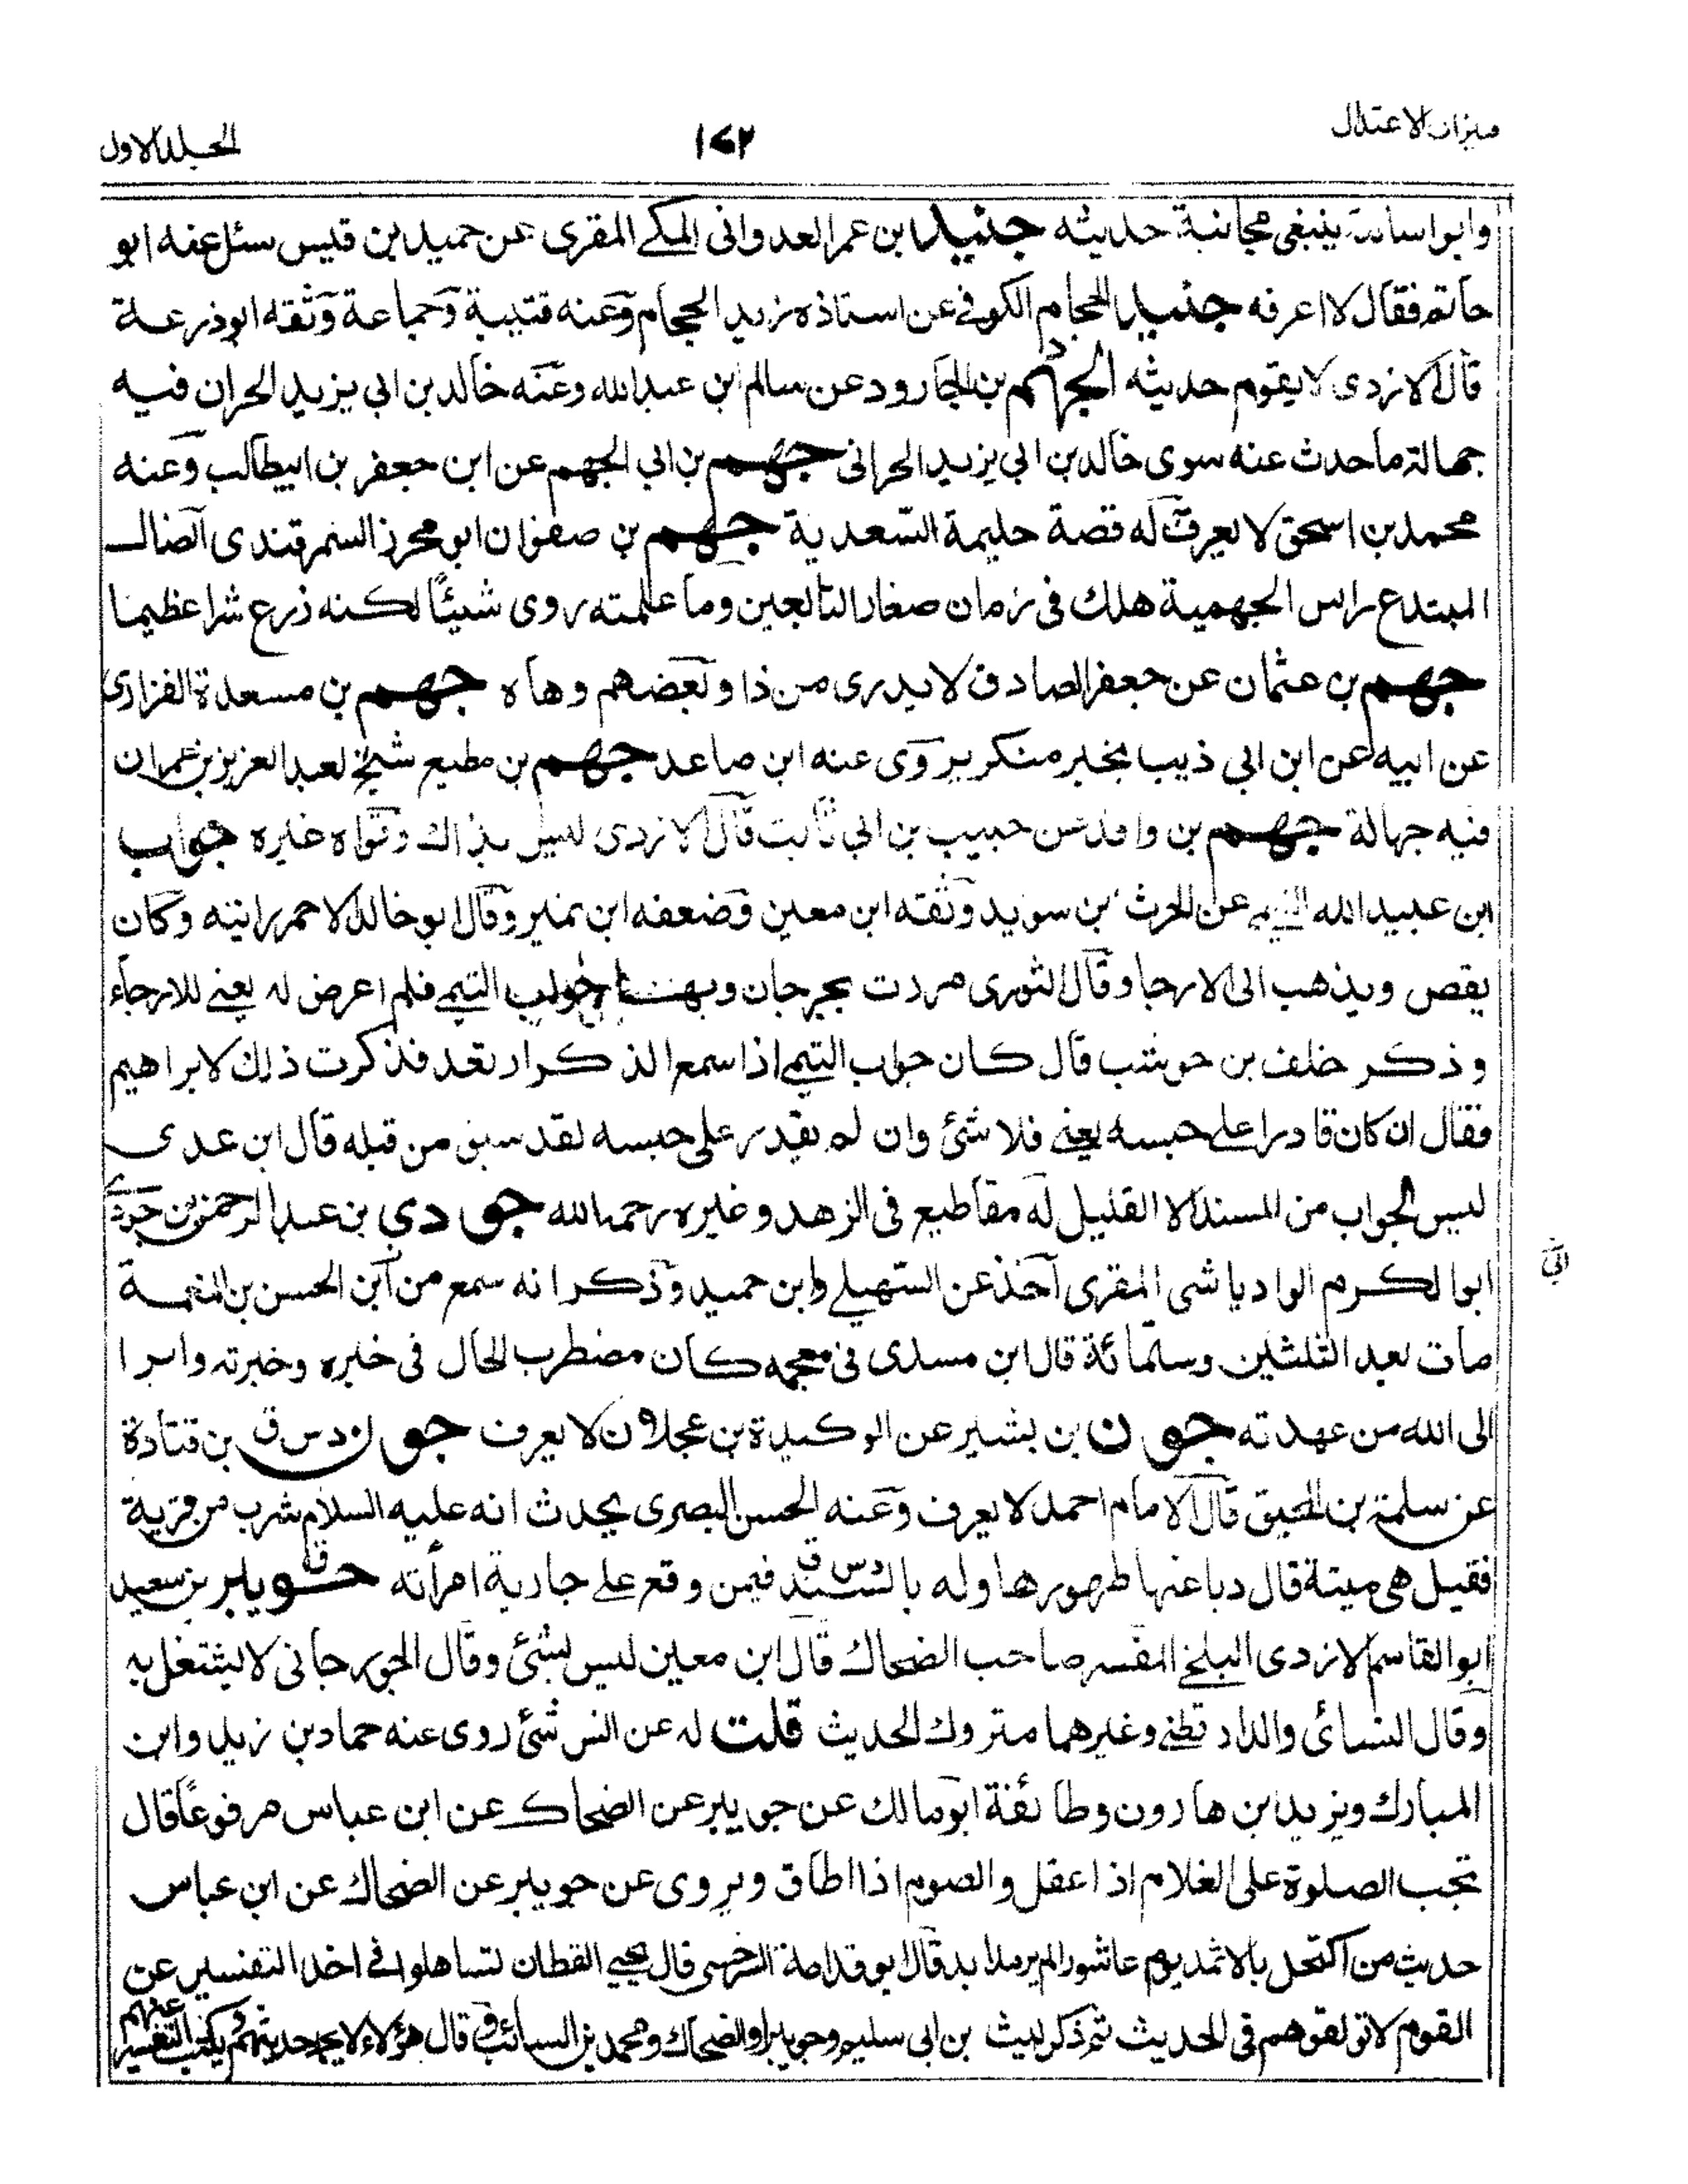 ميزان الاعتدال
١٧٢
المجلد الاول
وابو اسامة ينبغى مجانبة حديثه جنيد ابن عمر العدوانى المكے المقرى عن حميد بن قيس سئل عنه ابو
حاتم فقال لا اعرفه جنيد الحجام الكوفے عن استاذه زيد الحجام وعنه قتيبة وجماعة وثقه ابو ذرعة
قال الازدى لا يقوم حديثه الجهم بن الجارود عن سالم ابن عبد الله وعنه خالد بن ابي يزيد الحران فيه
جهالة ما حدث عنه سوى خالد بن ابي يزيد الحرانى جهم بن ابي الجهم عن ابن جعفر بن ابيطالب وعنه
محمد بن اسحق لا يعرف له قصة حليمة السعدية جهم بن صفوان ابو محرز السمرقندى الضال
المبتدع راس الجهمية هلك فى زمان صغار التابعين وما علمته روى شيئًا لكنه زرع شرا عظيما
جهم بن عثمان عن جعفر الصادق لا يدرى من ذا وبعضهم وهاه جهم بن مسعدة الفزارى
عن ابيه عن ابن ابي ذيب بخبر منكر يروى عنه ابن صاعد جهم بن مطيع شيخ لعبد العزيز بن عمران
فيه جهالة جهم بن واقد عن حبيب بن ابي ثابت قال الازدى ليس بذاك وقواه غيره جواب
ابن عبيد الله التيمي عن الحرث بن سويد وثقه ابن معين وضعفه ابن نمير وقال ابو خالد الاحمر رايته وكان
يقص ويذهب الى الارجا وقال الثورى مررت بجرجان وبها جواب التيمے فلم اعرض له يعنے للارجاء
وذكر خلف بن حوشب قال كان جواب التيمے اذا سمع الذكر ارتعد فذكرت ذلك لابراهيم
فقال ان كان قادرا علے حبسه يعنے فلا شئ وان لم يقدر على حبسه لقد سبق من قبله قال ابن عدى
ليس لجواب من المسند الا القليل له مقاطيع فى الزهد وغيره رحمه الله جودي بن عبد الرحمن بن جودى
ابو الكرم الوادياشى المقرى اخذ عن السهيلے وابن حميد وذكر انه سمع من ابن الحسن بن النعمة
مات بعد الثلثين وستمائة قال ابن مسدى فى معجمه كان مضطرب الحال فى خبره وخبرته وابرا
الى الله من عهدته جون بن بشير عن الوكيدة بن عجلان لا يعرف جون د س ق بن قتادة
عن سلمة بن المحبق قال الامام احمد لا يعرف وعنه الحسن البصرى بحدث انه عليه السلام شرب من قربة
فقيل هى ميتة قال دباغتها طهورها وله بالسند د س ق فيمن وقع علے جارية امرأته جويبر ق بن سعيد
ابو القاسم الازدى البلخے المفسر صاحب الضحاك قال ابن معين ليس بشئ وقال الجوزجانى لا يشتغل به
وقال النسائى والدارقطنے وغيرهما متروك الحديث قلت له عن انس شئ روى عنه حماد بن زيد وابن
المبارك ويزيد بن هارون وطائفة ابو مالك عن جويبر عن الضحاك عن ابن عباس مرفوعًا قال
تجب الصلوة على الغلام اذا عقل والصوم اذا اطاق ويروى عن جويبر عن الضحاك عن ابن عباس
حديث من اكتحل بالاثمد يوم عاشورا لم يرمد ابد قال ابو قدامة السرخسى قال يحيے القطان تساهلوا فے اخذ التفسير عن
القوم لا توثقوهم فى الحديث ثم ذكر ليث بن ابى سليم وجويبرا والضحاك ومحمد بن السائب وقال هؤلاء لا يحمد حديثهم ويكتب التفسير عنهم